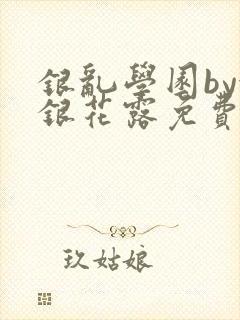 銀亂學園by
銀花露免費
玖姑娘